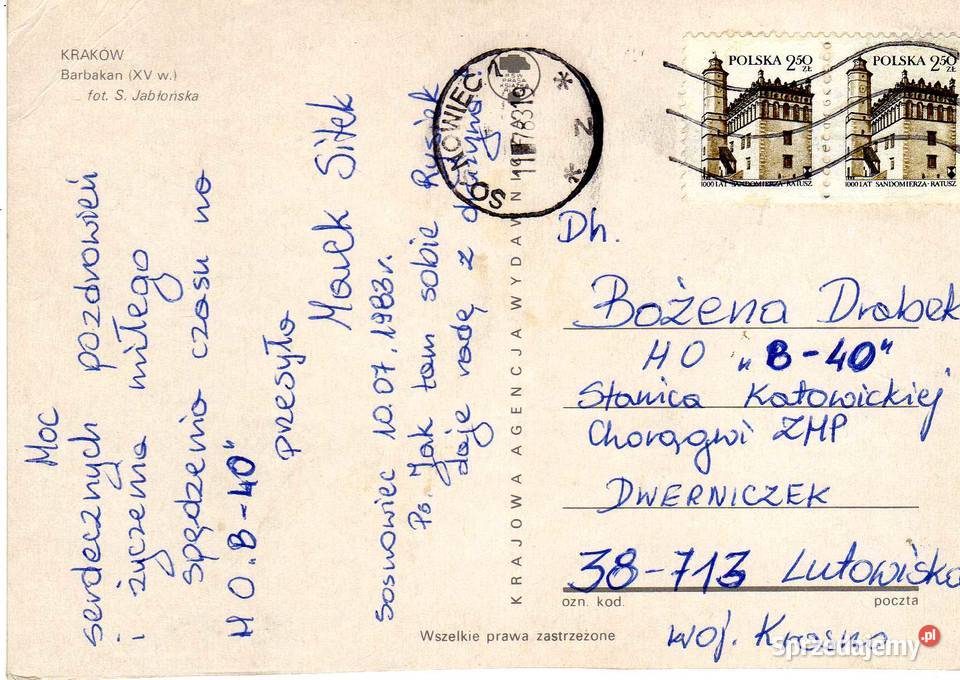 KRAKÓW
Barbakan (XV w.)
fot. S. Jabłońska
Moc
serdecznych pozdrowień
i życzenia miłego
spędzenia czasu na
HO „B-40"
przesyła
Marek Sitek
Sosnowiec 10.07.1983r.
Ps. Jak tam sobie Rusiek
daje radę z drużyną?
KRAJOWA AGENCJA WYDAWN
SOSNOWIEC 1
POLSKA 2,50 ZŁ
1000 LAT SANDOMIERZA-RATUSZ
POLSKA 2,50 ZŁ
1000 LAT SANDOMIERZA-RATUSZ
Dh.
Bożena Drabek
HO „B-40"
Stanica Katowickiej
Chorągwi ZHP
DWERNICZEK
38-713 Lutowiska
ozn. kod. poczta
woj. Krosno
Wszelkie prawa zastrzeżone
Sprzedajemy.pl